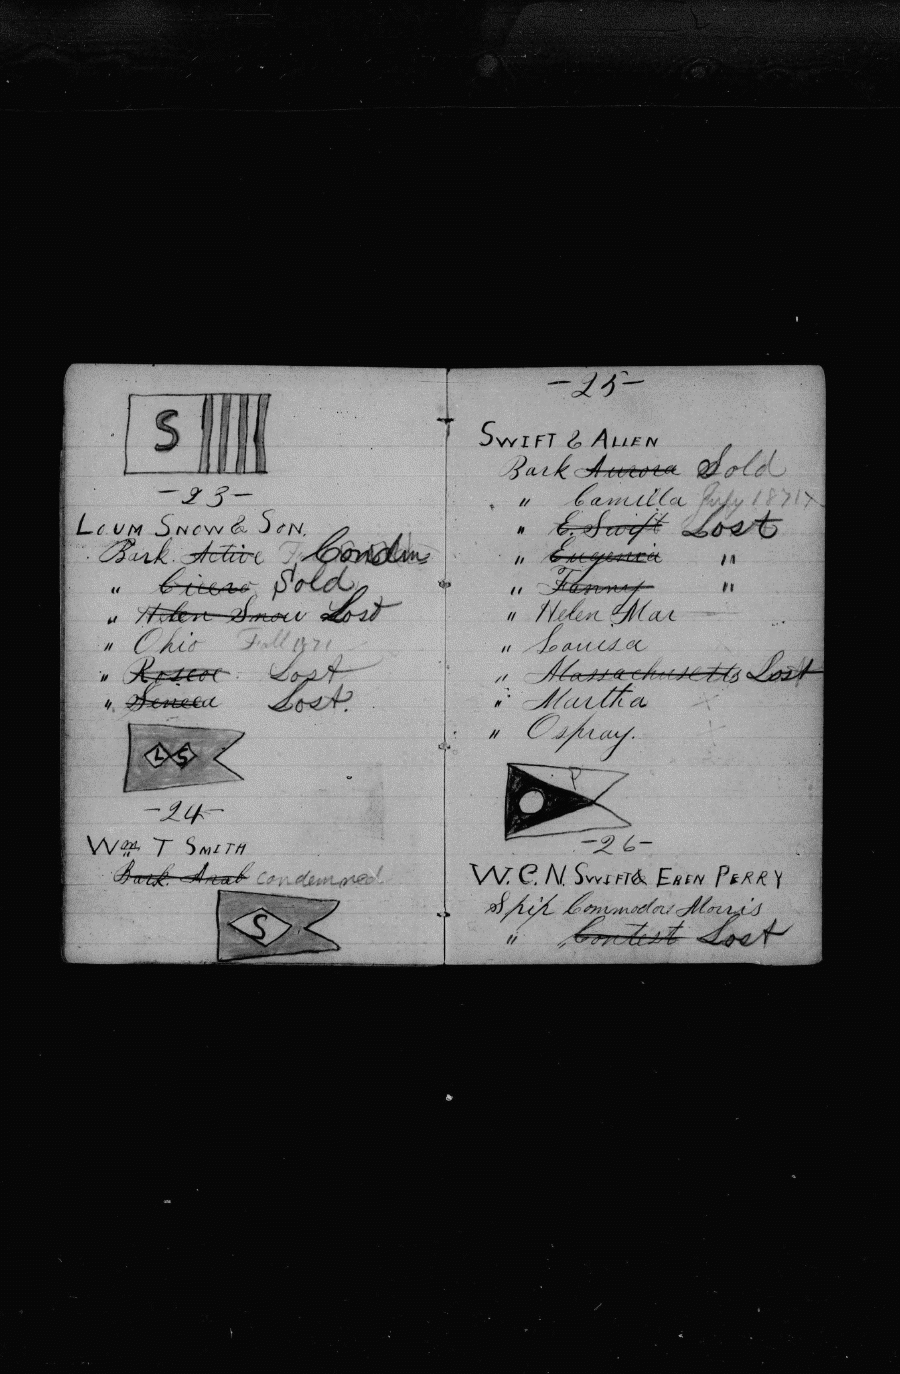 S
-23-
LOUM SNOW & SON.
Bark Active Condem
" Cicero Sold
" Helen Snow Lost
" Ohio Fall 1871
" Roscoe Lost
" Seneca Lost.
L S
-24-
Wm T SMITH
Bark Arab condemned
S
-25-
SWIFT & ALLEN
Bark Aurora Sold
" Camilla July 1871 x
" E. Swift Lost
" Eugenia "
" Fanny "
" Helen Mar
" Louisa
" Massachusetts Lost
" Martha x
" Ospray. x
P
-26-
W. C. N. SWIFT & EBEN PERRY
Ship Commodore Morris
" Contest Lost